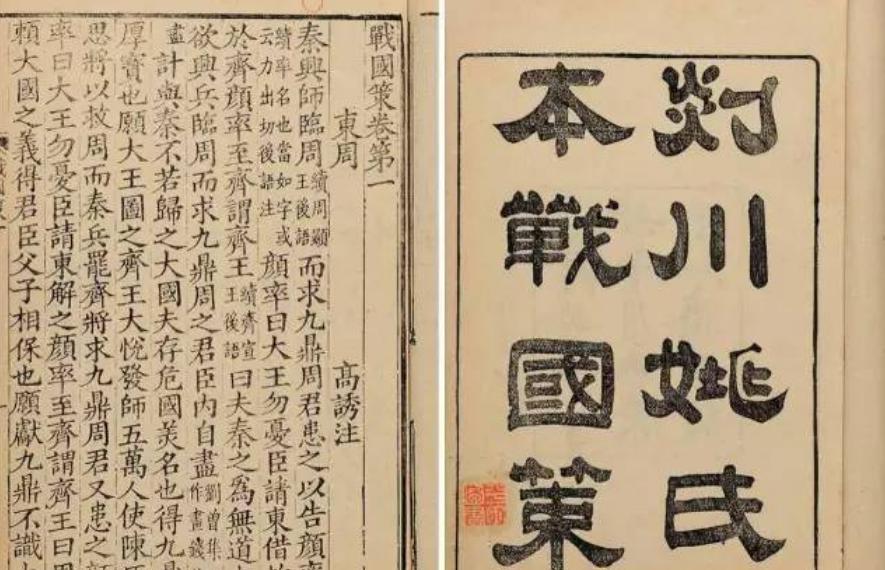 剡川姚氏
本戰國策
戰國策卷第一
東周 高誘注
秦興師臨周續周顯王後語而求九鼎周君患之以告顏率
續率名也當如字或云力出切後語注顏率曰大王勿憂臣請東借
於齊顏率至齊謂齊王續齊宣王後語曰夫秦之爲無道
欲興兵臨周而求九鼎周之君臣內自盡劉曾集作畫錢
盡計與秦不若歸之大國夫存危國羙名也得九鼎
厚寳也願大王圖之齊王大悅發師五萬人使陳
思將以救周而秦兵罷齊將求九鼎周君又患之顏
率曰大王勿憂臣請東解之顏率至齊謂齊王曰周
頼大國之義得君臣父子相保也願獻九鼎不識